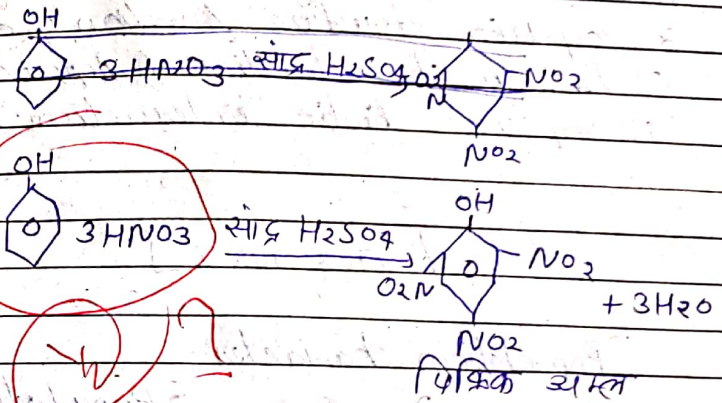 OH
3HNO3 सांद्र H2SO4 O2N NO2
NO2
OH
3HNO3 सांद्र H2SO4
OH
O2N NO2
+ 3H2O
NO2
पिक्रिक अम्ल